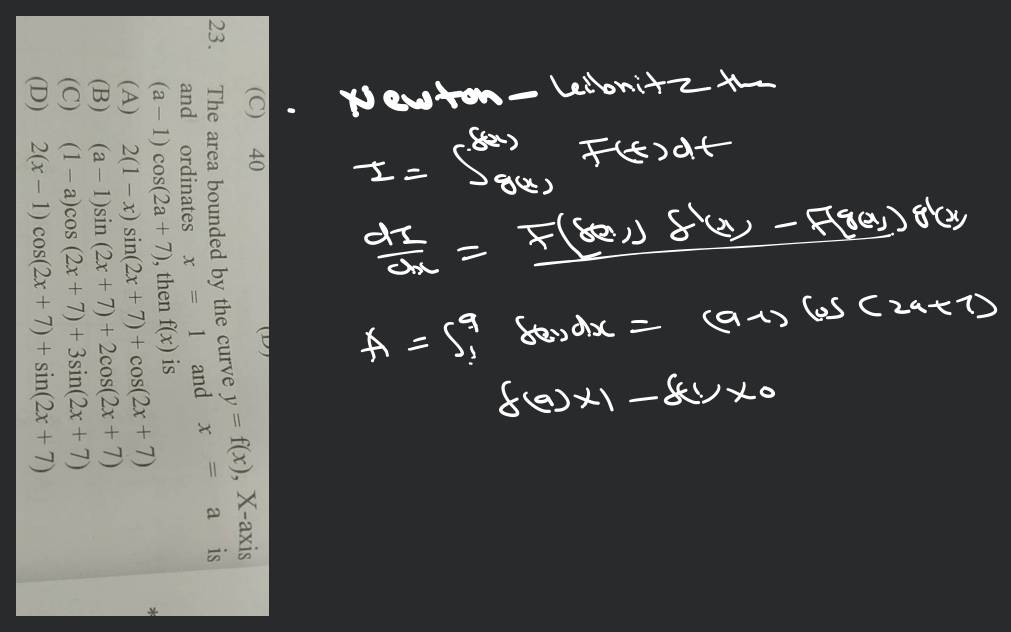 (C) 40
(D)
23. The area bounded by the curve y = f(x), X-axis
and ordinates x = 1 and x = a is
(a – 1) cos(2a + 7), then f(x) is
(A) 2(1 – x) sin(2x + 7) + cos(2x + 7)
(B) (a – 1)sin (2x + 7) + 2cos(2x + 7)
(C) (1 – a)cos (2x + 7) + 3sin(2x + 7)
(D) 2(x – 1) cos(2x + 7) + sin(2x + 7)
*
. Newton – Leibnitz thm
I = ∫_{g(x)}^{f(x)} F(t)dt
dI/dx = F(f(x)) f'(x) – F(g(x)) g'(x)
A = ∫_1^a f(x)dx = (a-1) cos (2a+7)
f(a) x 1 – f(1) x 0